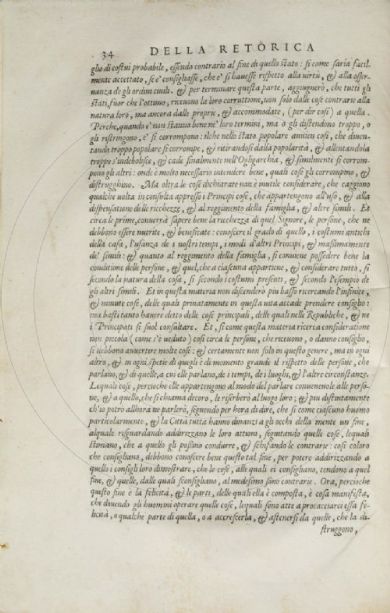 34 DELLA RETORICA
glio di costui probabile, essendo contrario al fine di quello stato: si come saria facil-
mente accettato, se e' consigliasse, che e' si hauesse rispetto alla virtù, & alla osser-
uanza de gli ordini ciuili. & per terminare questa parte, aggiugnerò, che tutti gli
stati, fuor che l'ottimo, riceuono la loro corruttione, non solo dalle cose contrarie alla
natura loro, ma ancora dalle proprie, & accommodate, (per dir così) a quella.
Perche, quando e' non stanno bene ne' loro termini, ma o gli distendono troppo, o
gli ristringono, e' si corrompono: ilche nello stato popolare auuien così, che diuen-
tando troppo popolare si corrompe, & ritirandosi dalla popolarità, & allentandola
troppo s'indebolisce, & cade finalmente nell'Oligarchia, & similmente si corrom-
pono gli altri: onde è molto necessario intendere bene, quali cose gli corrompono, &
distrugghino. Ma oltra le cose dichiarate non è inutile considerare, che caggiono
qualche uolta in consulta appresso i Principi cose, che appartengono all'uso, & alla
dispensatione delle ricchezze, & al reggimento della famiglia, & altre simili. Et
circa le prime, conuerrà sapere bene la ricchezza di quel Signore, le persone, che ne
debbono essere nutrite, & beneficate: conoscere il grado di quello, i costumi antichi
della casa, l'usanza de i nostri tempi, i modi d'altri Principi, & massimamente
de' simili: & quanto al reggimento della famiglia, si conuiene possedere bene la
conditione delle persone, & quel, che a ciascuna appartiene, & considerare tutto, sì
secondo la natura della cosa, sì secondo i costumi presenti, & secondo l'esempio de
gli altri simili. Et in questa materia non discendrò più basso ricercando l'infinite,
& minute cose, delle quali priuatamente in questa uita accade prendere consiglio:
ma basti tanto hauere detto delle cose principali, delle quali nelle Republiche, & ne
i Principati si suol consultare. Et, si come questa materia ricerca consideratione
non piccola (come s'è ueduto) così circa le persone, che riceuono, o danno consiglio,
si debbono auuertire molte cose: & certamente non solo in questo genere, ma in ogni
altro, & in ogni spetie di quegli è di momento grande il rispetto delle persone, che
parlano, & di quelle, a cui elle parlano, de i tempi, de i luoghi, & l'altre circostanze.
Lequali cose, percioche elle appartengono al modo del parlare conueneuole alle perso-
ne, & a quello, che si chiama decoro, le riserberò al luogo loro; & più distintamente
ch'io potrò allhora ne parlerò, seguendo per hora di dire, che sì come ciascuno huomo
particolarmente, & la Città tutta hanno dinanzi a gli occhi della mente un fine,
alquale risguardando addirizzano le loro attioni, seguitando quelle cose, lequali
stimano, che a quello gli possino condurre, & schifando le contrarie: così coloro
che consigliano, debbono conoscere bene questo tal fine, per potere addirizzando a
quello i consigli loro dimostrare, che le cose, alle quali ei consigliano, tendono a quel
fine, & quelle, dalle quali sconsigliano, al medesimo sono contrarie. Ora, percioche
questo fine è la felicità, & le parti, delle quali ella è composta, è cosa manifesta,
che diuendo gli huomini operare quelle cose, lequali sono atte a procacciarci essa fe-
licità, o qualche parte di quella, o a accrescerla, & astenersi da quelle, che la di-
struggono,